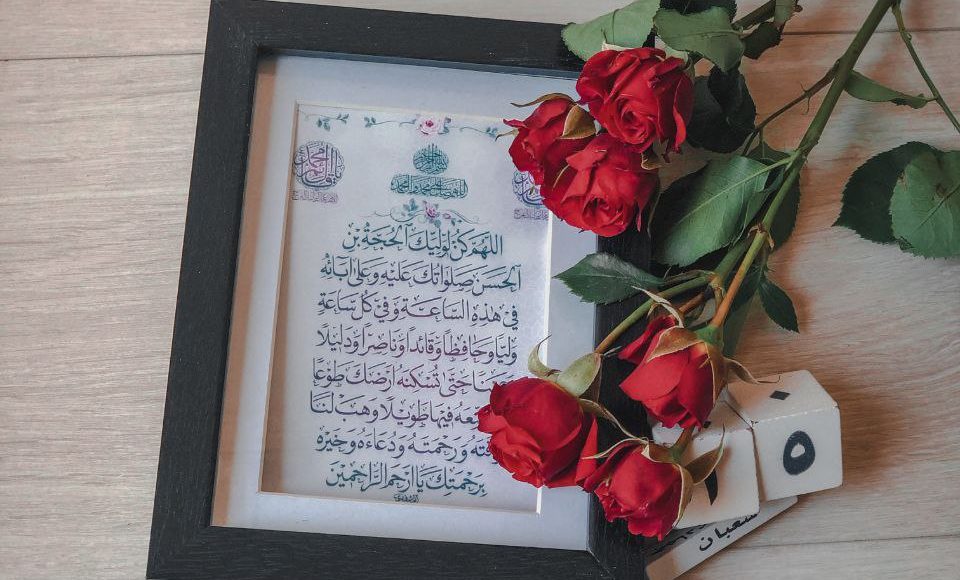 اللهم صل على محمد وآل محمد
اللَّهُمَّ كُنْ لِوَلِيِّكَ الْحُجَّةِ بْنِ
الْحَسَنِ صَلَوَاتُكَ عَلَيْهِ وَعَلَى آبَائِهِ
فِي هَذِهِ السَّاعَةِ وَفِي كُلِّ سَاعَةٍ
وَلِيًّا وَحَافِظًا وَقَائِدًا وَنَاصِرًا وَدَلِيلًا
حَتَّى تُسْكِنَهُ أَرْضَكَ طَوْعًا
فِيهَا طَوِيلًا وَهَبْ لَنَا
وَرَحْمَتَهُ وَدُعَاءَهُ وَخَيْرَهُ
بِرَحْمَتِكَ يَا أَرْحَمَ الرَّاحِمِينَ
٥
شعبان